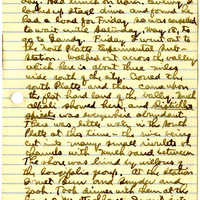 day. Had lunch on
looked up stage driver and found he
had a load for Friday, so was compelled
to wait until Saturday, May 18, to
go to Gandy. Friday I went out to
the North Platte Experimental Sub-
station. Walked out across the valley
which here is about three miles
wide south of the city. Crossed the
South Platte and then came upon
the flat, low land of the valley. Much
alfalfa showed here, and Distichlis
spicata was everywhere abundant.
There was little water in the South
Platte at this time - the river being
cut into many small rivulets or
channels with much sand between.
The shore was lined by willows of
the longifolia group. At the station
I met Burr and Snyder and
Took dinner with them at the